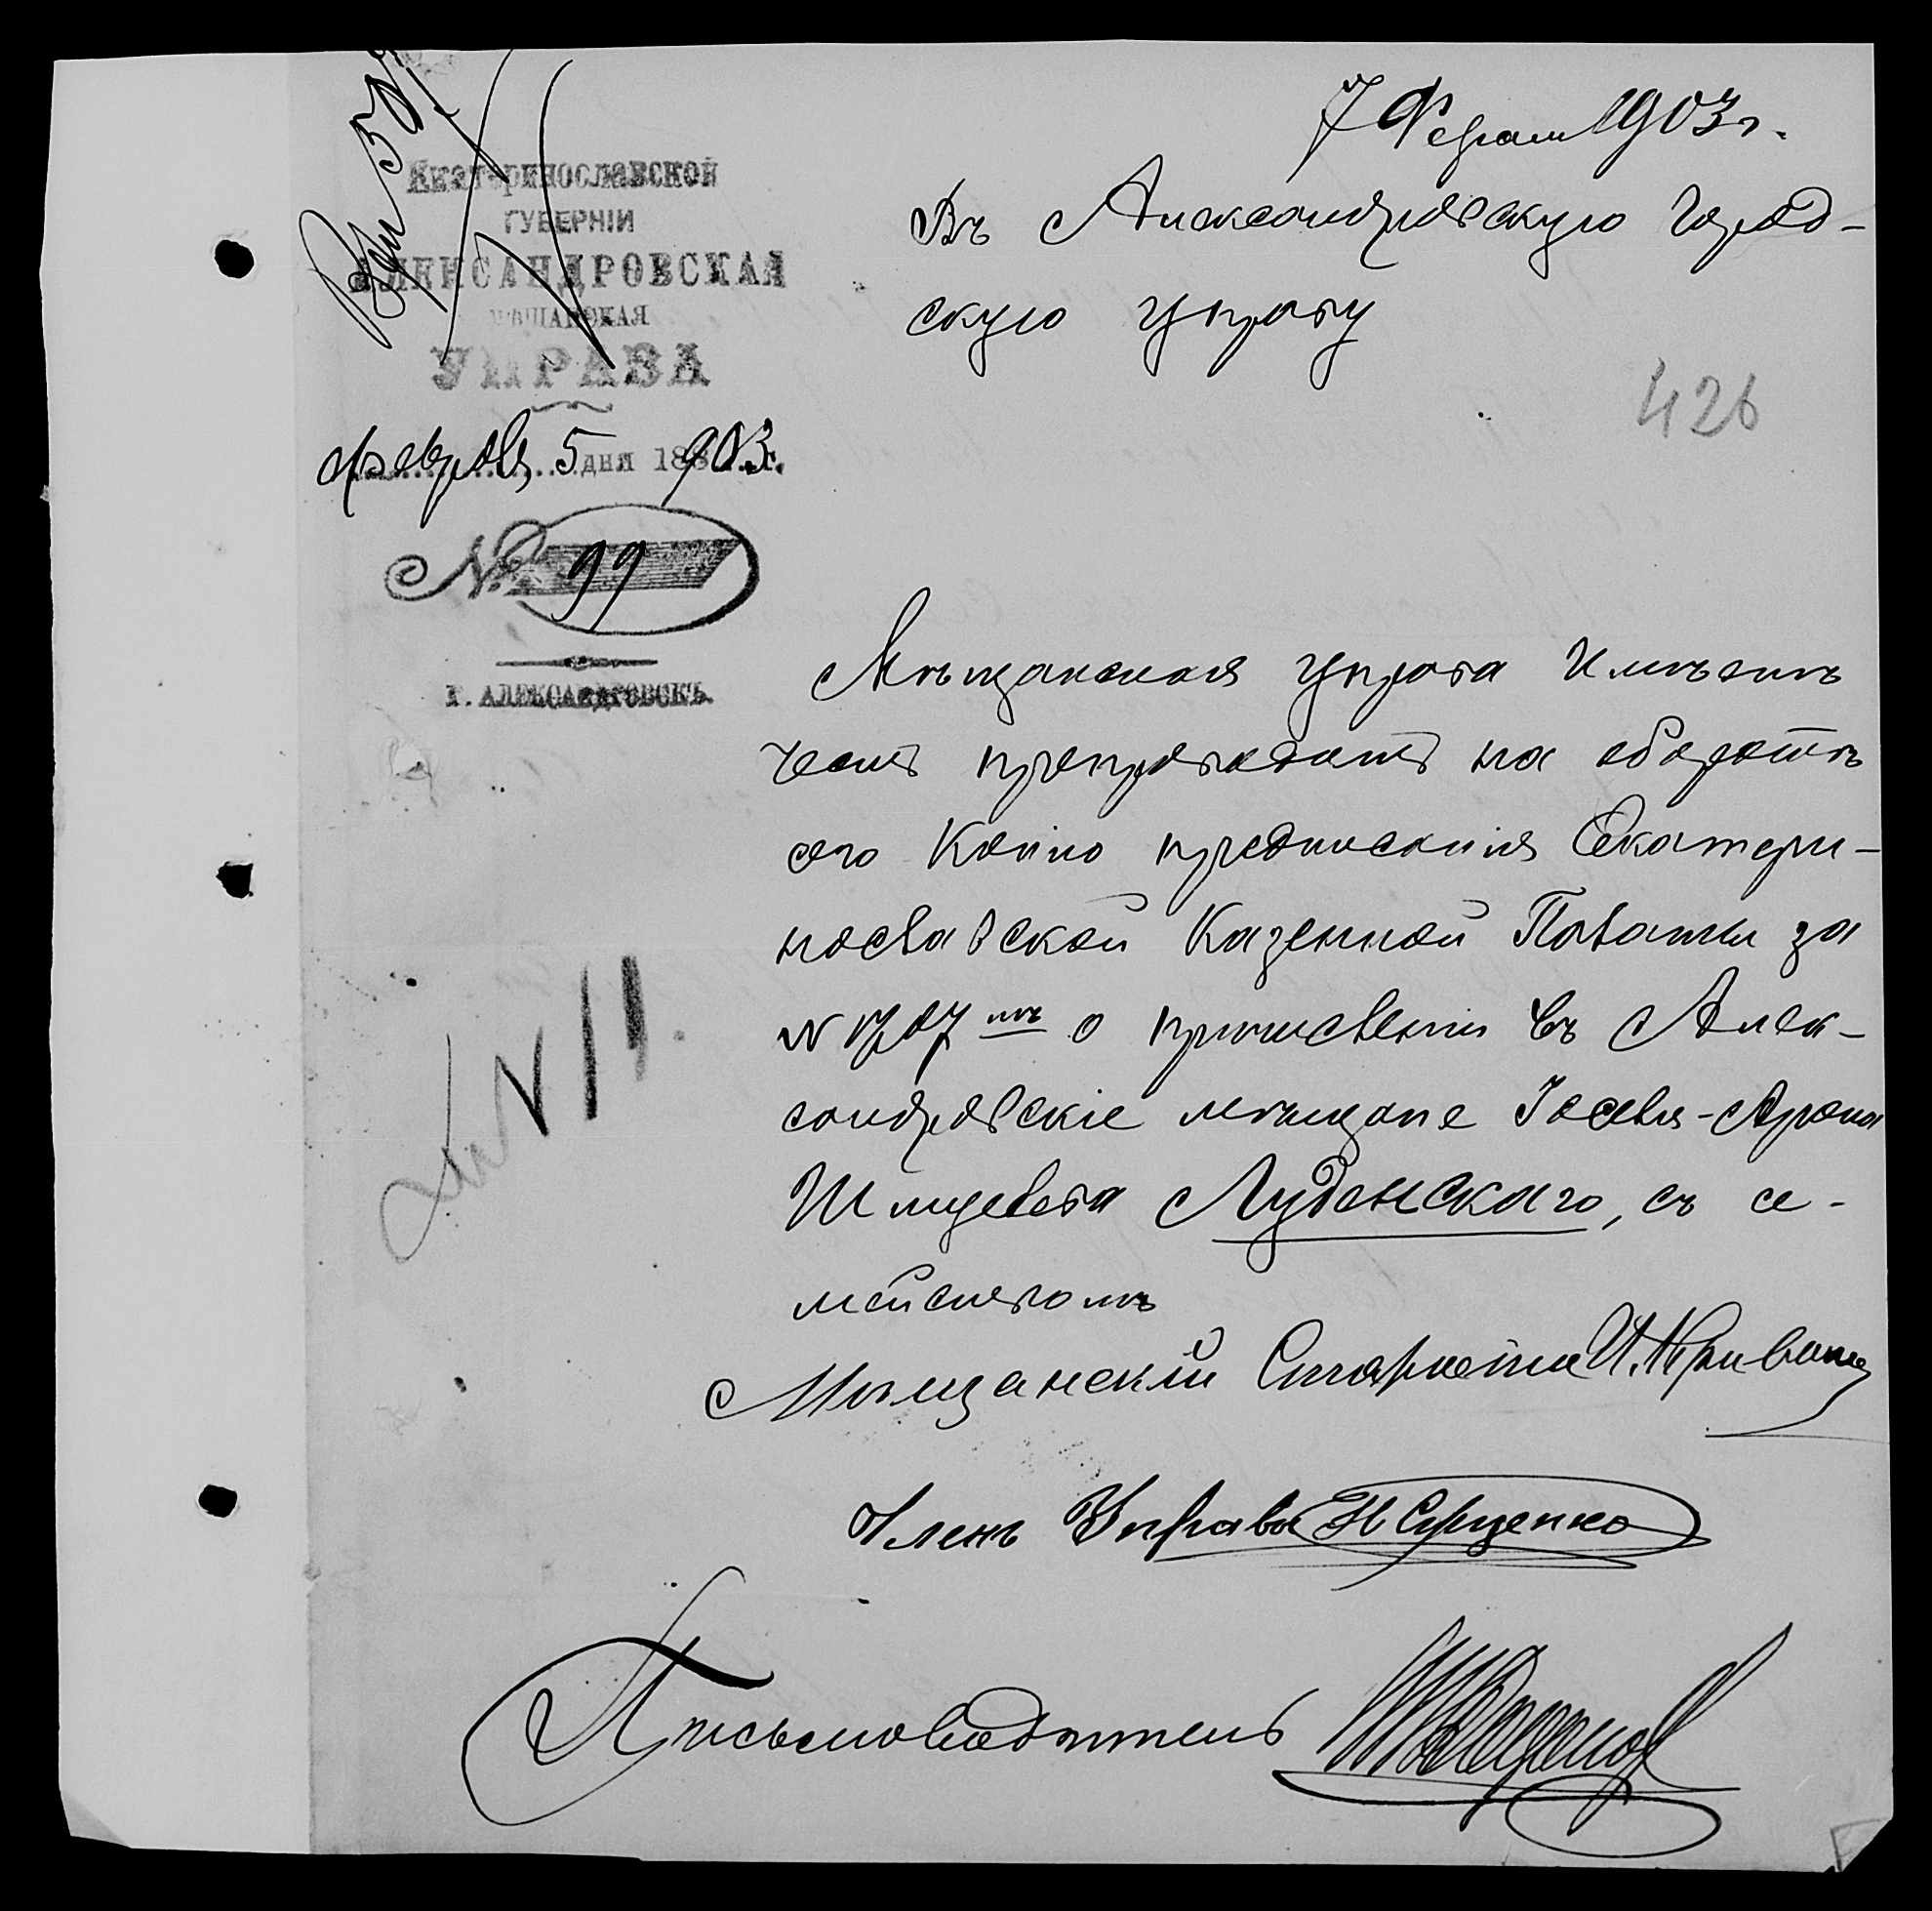 7 Февраля 1903 г.
Екатеринославской
ГУБЕРНІИ
АЛЕКСАНДРОВСКАЯ
МѢЩАНСКАЯ
УПРАВА
Февраля 5 дня 1903 г.
№ 99
Г. АЛЕКСАНДРОВСКЪ.
Въ Александровскую Город-
скую Управу
426
Мѣщанская Управа имѣетъ
честь препроводить на оборотѣ
сего копію предписанія Екатери-
нославской Казенной Палаты за
о причисленіи въ Алек-
сандровскіе мѣщане Іоселя-Арона
Шмулевича Луденскаго, съ се-
мействомъ
№ 11.
Мѣщанскій Староста И.
Членъ Управы Н
Письмоводитель